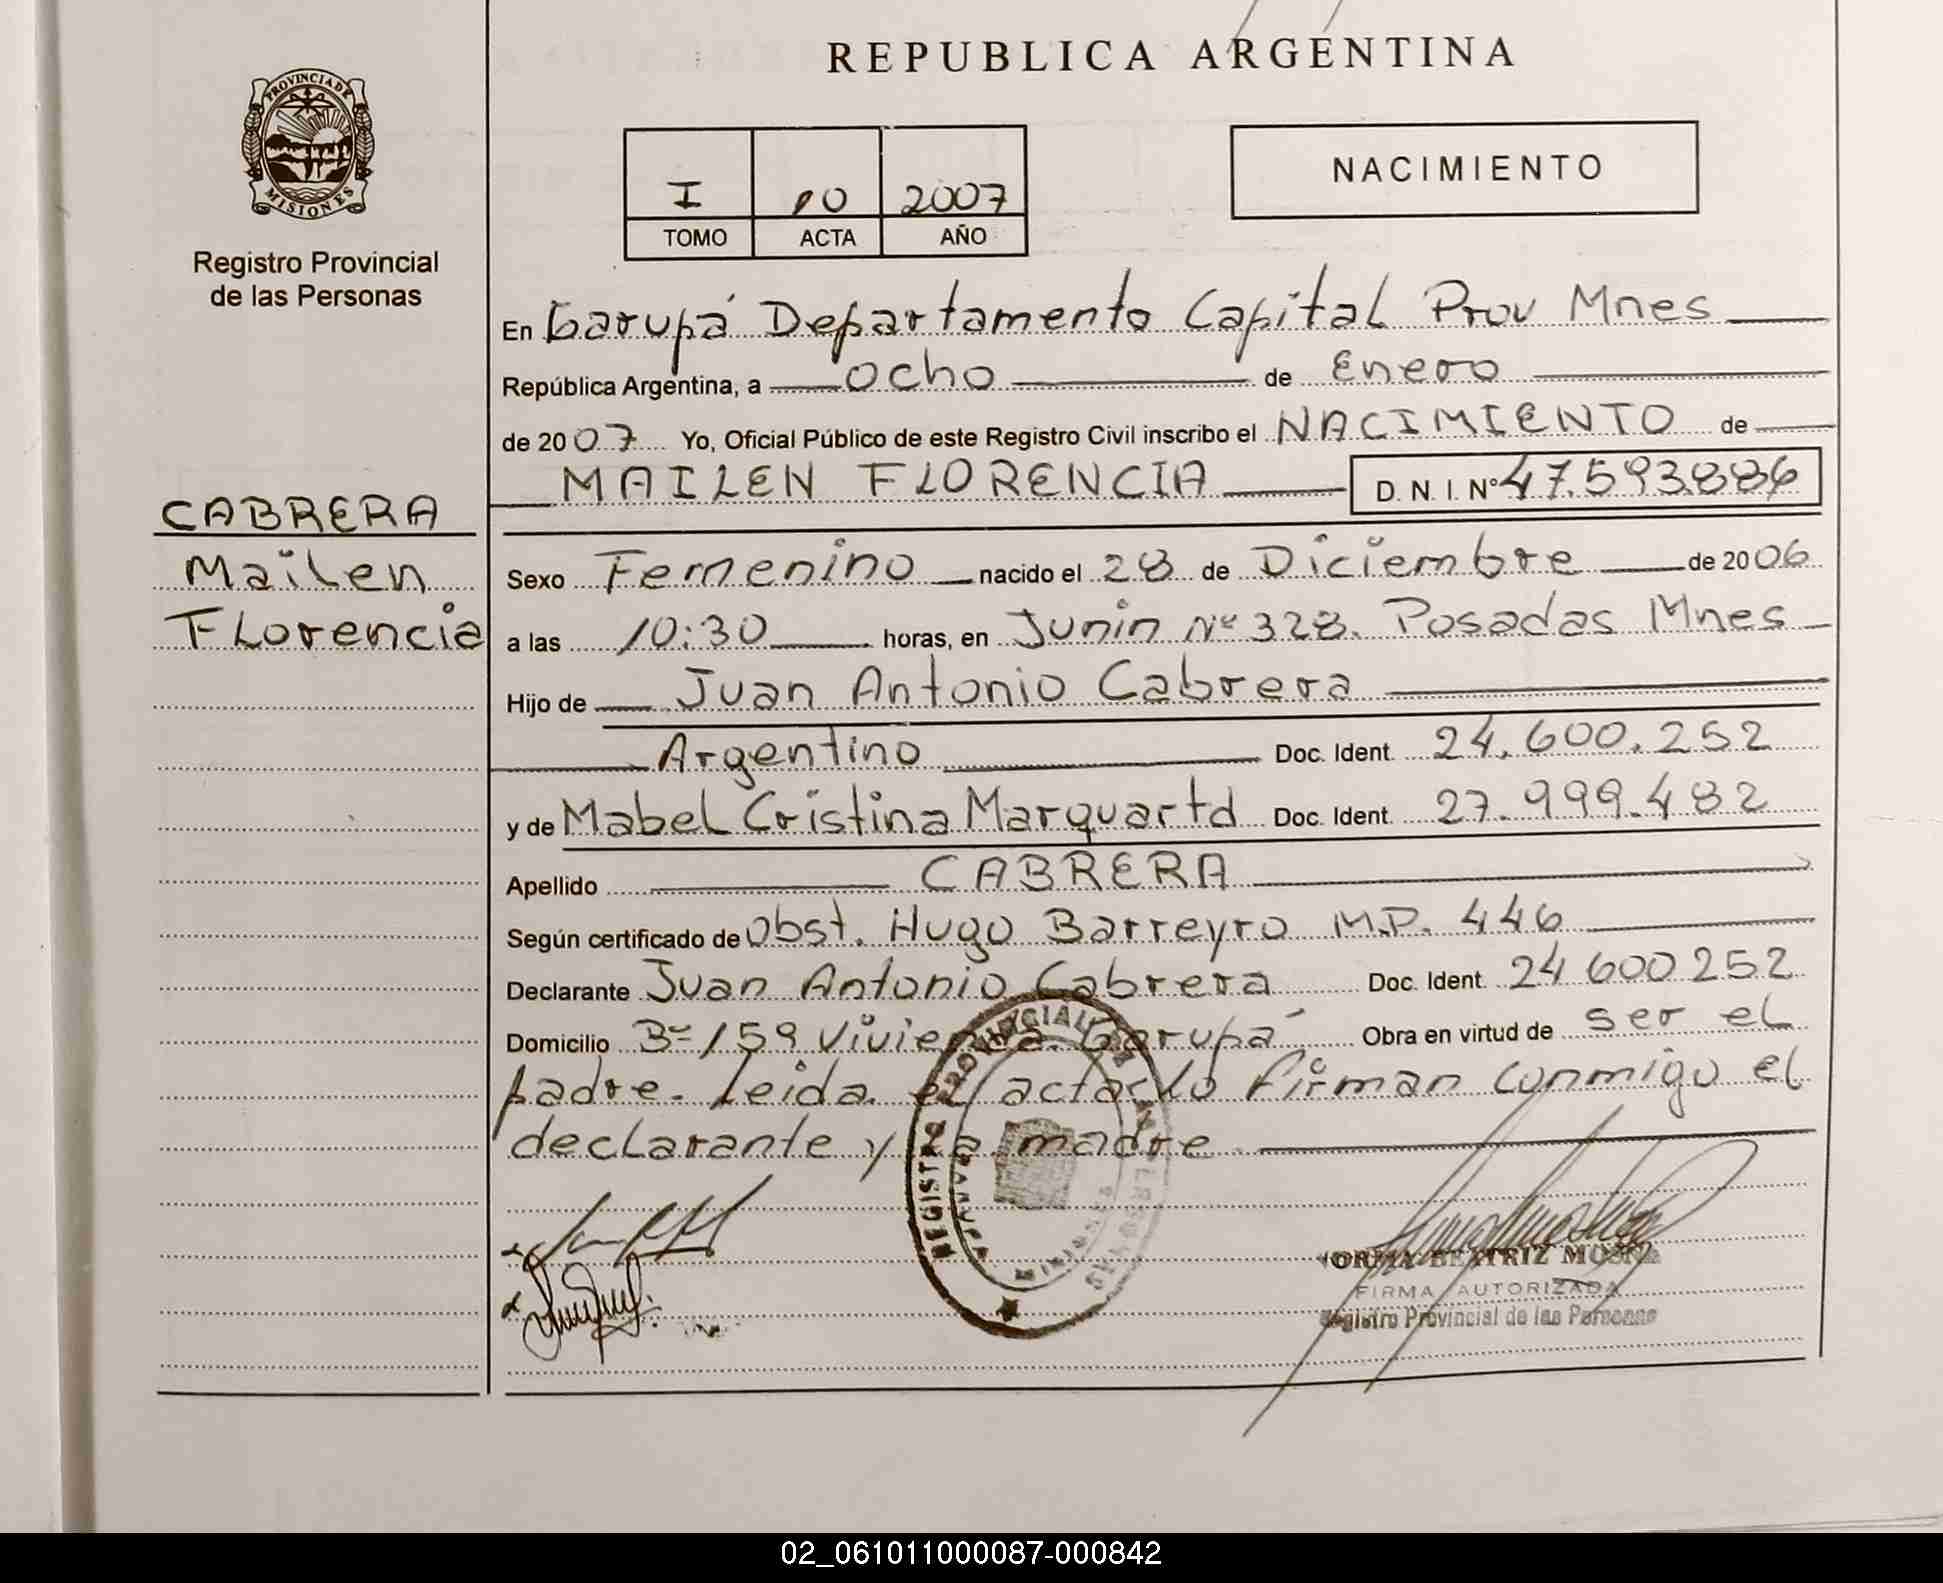 REPUBLICA ARGENTINA
PROVINCIA DE
MISIONES
Registro Provincial
de las Personas
I 10 2007
TOMO ACTA AÑO
NACIMIENTO
En Garupá Departamento Capital Prov Mnes
República Argentina, a ocho de Enero
de 2007 Yo, Oficial Público de este Registro Civil inscribo el NACIMIENTO de
MAILEN FLORENCIA D.N.I. Nº 47.593.886
CABRERA
Mailen
Florencia
Sexo Femenino nacido el 28 de Diciembre de 2006
a las 10:30 horas, en Junin Nº 328. Posadas Mnes
Hijo de Juan Antonio Cabrera
Argentino Doc. Ident. 24.600.252
y de Mabel Cristina Marquartd Doc. Ident. 27.999.482
Apellido CABRERA
Según certificado de Obst. Hugo Barreyro M.P. 446
Declarante Juan Antonio Cabrera Doc. Ident. 24 600 252
Domicilio Bº 159 Vivienda. Garupá Obra en virtud de ser el
padre. Leida el acta lo firman conmigo el
declarante y la madre
REGISTRO PROVINCIAL
NORMA BEATRIZ
FIRMA AUTORIZADA
Registro Provincial de las Personas
02_061011000087-000842